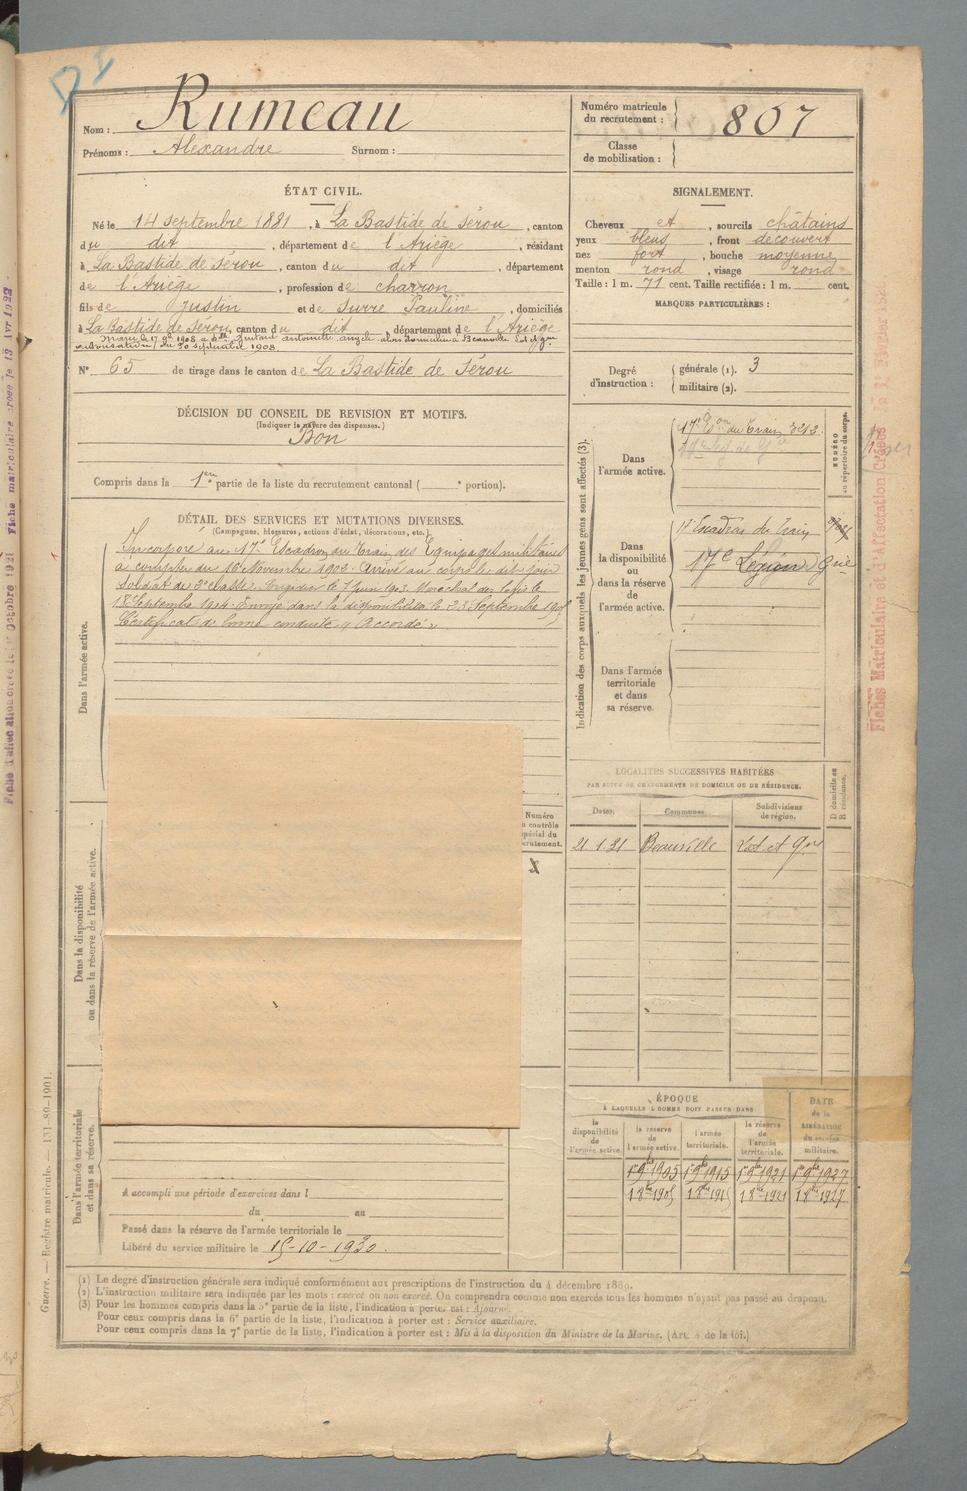 Nom : Rumeau
Prénoms : Alexandre Surnom :
Numéro matricule du recrutement : 807
Classe de mobilisation :
ÉTAT CIVIL.
Né le 14 septembre 1881, à La Bastide de Sérou, canton
du dit, département de l'Ariège, résidant
à La Bastide de Sérou, canton du dit, département
de l'Ariège, profession de charron
fils de Justin et de Surre Pauline, domiciliés
à La Bastide de Sérou, canton du dit, département de l'Ariège
N° 65 de tirage dans le canton de La Bastide de Sérou
SIGNALEMENT.
Cheveux et, sourcils châtains
yeux bleus, front découvert
nez fort, bouche moyenne
menton rond, visage rond
Taille : 1 m. 71 cent. Taille rectifiée : 1 m. cent.
MARQUES PARTICULIÈRES :
Degré d'instruction : générale (1). 3
militaire (2).
DÉCISION DU CONSEIL DE REVISION ET MOTIFS.
(Indiquer la nature des dispenses.)
Bon
Compris dans la 1ere partie de la liste du recrutement cantonal ( ° portion).
DÉTAIL DES SERVICES ET MUTATIONS DIVERSES.
(Campagnes, blessures, actions d'éclat, décorations, etc.)
Incorporé au 17e Escadron du Train des Equipages militaires
à compter du 16 Novembre 1902. Arrivé au corps le dit jour
Soldat de 2e classe. Brigadier le 7 Juin 1903. Maréchal des logis le
18 Septembre 1904. Envoyé dans la disponibilité le 23 Septembre 1905
Certificat de bonne conduite "Accordé"
Dans l'armée active.
Dans la disponibilité ou dans la réserve de l'armée active.
Dans l'armée territoriale et dans sa réserve.
Indication des corps auxquels les jeunes gens sont affectés (3).
NUMÉRO au répertoire du corps.
Dans l'armée active.
17e Eon du Train 3213
Dans la disponibilité ou dans la réserve de l'armée active.
17e Escadron du Train
17e Légion Gie
Dans l'armée territoriale et dans sa réserve.
LOCALITÉS SUCCESSIVES HABITÉES
PAR SUITE DE CHANGEMENTS DE DOMICILE OU DE RÉSIDENCE.
Dates. Communes. Subdivisions de région. D domicile ou R résidence.
21 1.21 Beauville Lot et Gne
ÉPOQUE
À LAQUELLE L'HOMME DOIT PASSER DANS
la disponibilité de l'armée active.
la réserve de l'armée active.
l'armée territoriale.
la réserve de l'armée territoriale.
DATE de la LIBÉRATION du service militaire.
1er 9bre 1905 1er 9bre 1915 1er 9bre 1921 1er 9bre 1927
1 8bre 1905 1 8bre 1915 1 8bre 1921 1 8bre 1927
A accompli une période d'exercices dans l
du au
Passé dans la réserve de l'armée territoriale le
Libéré du service militaire le 15-10-1930.
(1) Le degré d'instruction générale sera indiqué conformément aux prescriptions de l'instruction du 4 décembre 1889.
(2) L'instruction militaire sera indiquée par les mots : exercé ou non exercé. On comprendra comme non exercés tous les hommes n'ayant pas passé au drapeau.
(3) Pour les hommes compris dans la 5e partie de la liste, l'indication à porter est : Ajourné.
Pour ceux compris dans la 6e partie de la liste, l'indication à porter est : Service auxiliaire.
Pour ceux compris dans la 7e partie de la liste, l'indication à porter est : Mis à la disposition du Ministre de la Marine. (Art. 4 de la loi.)
Guerre. — Registre matricule. — 131-89-1901.